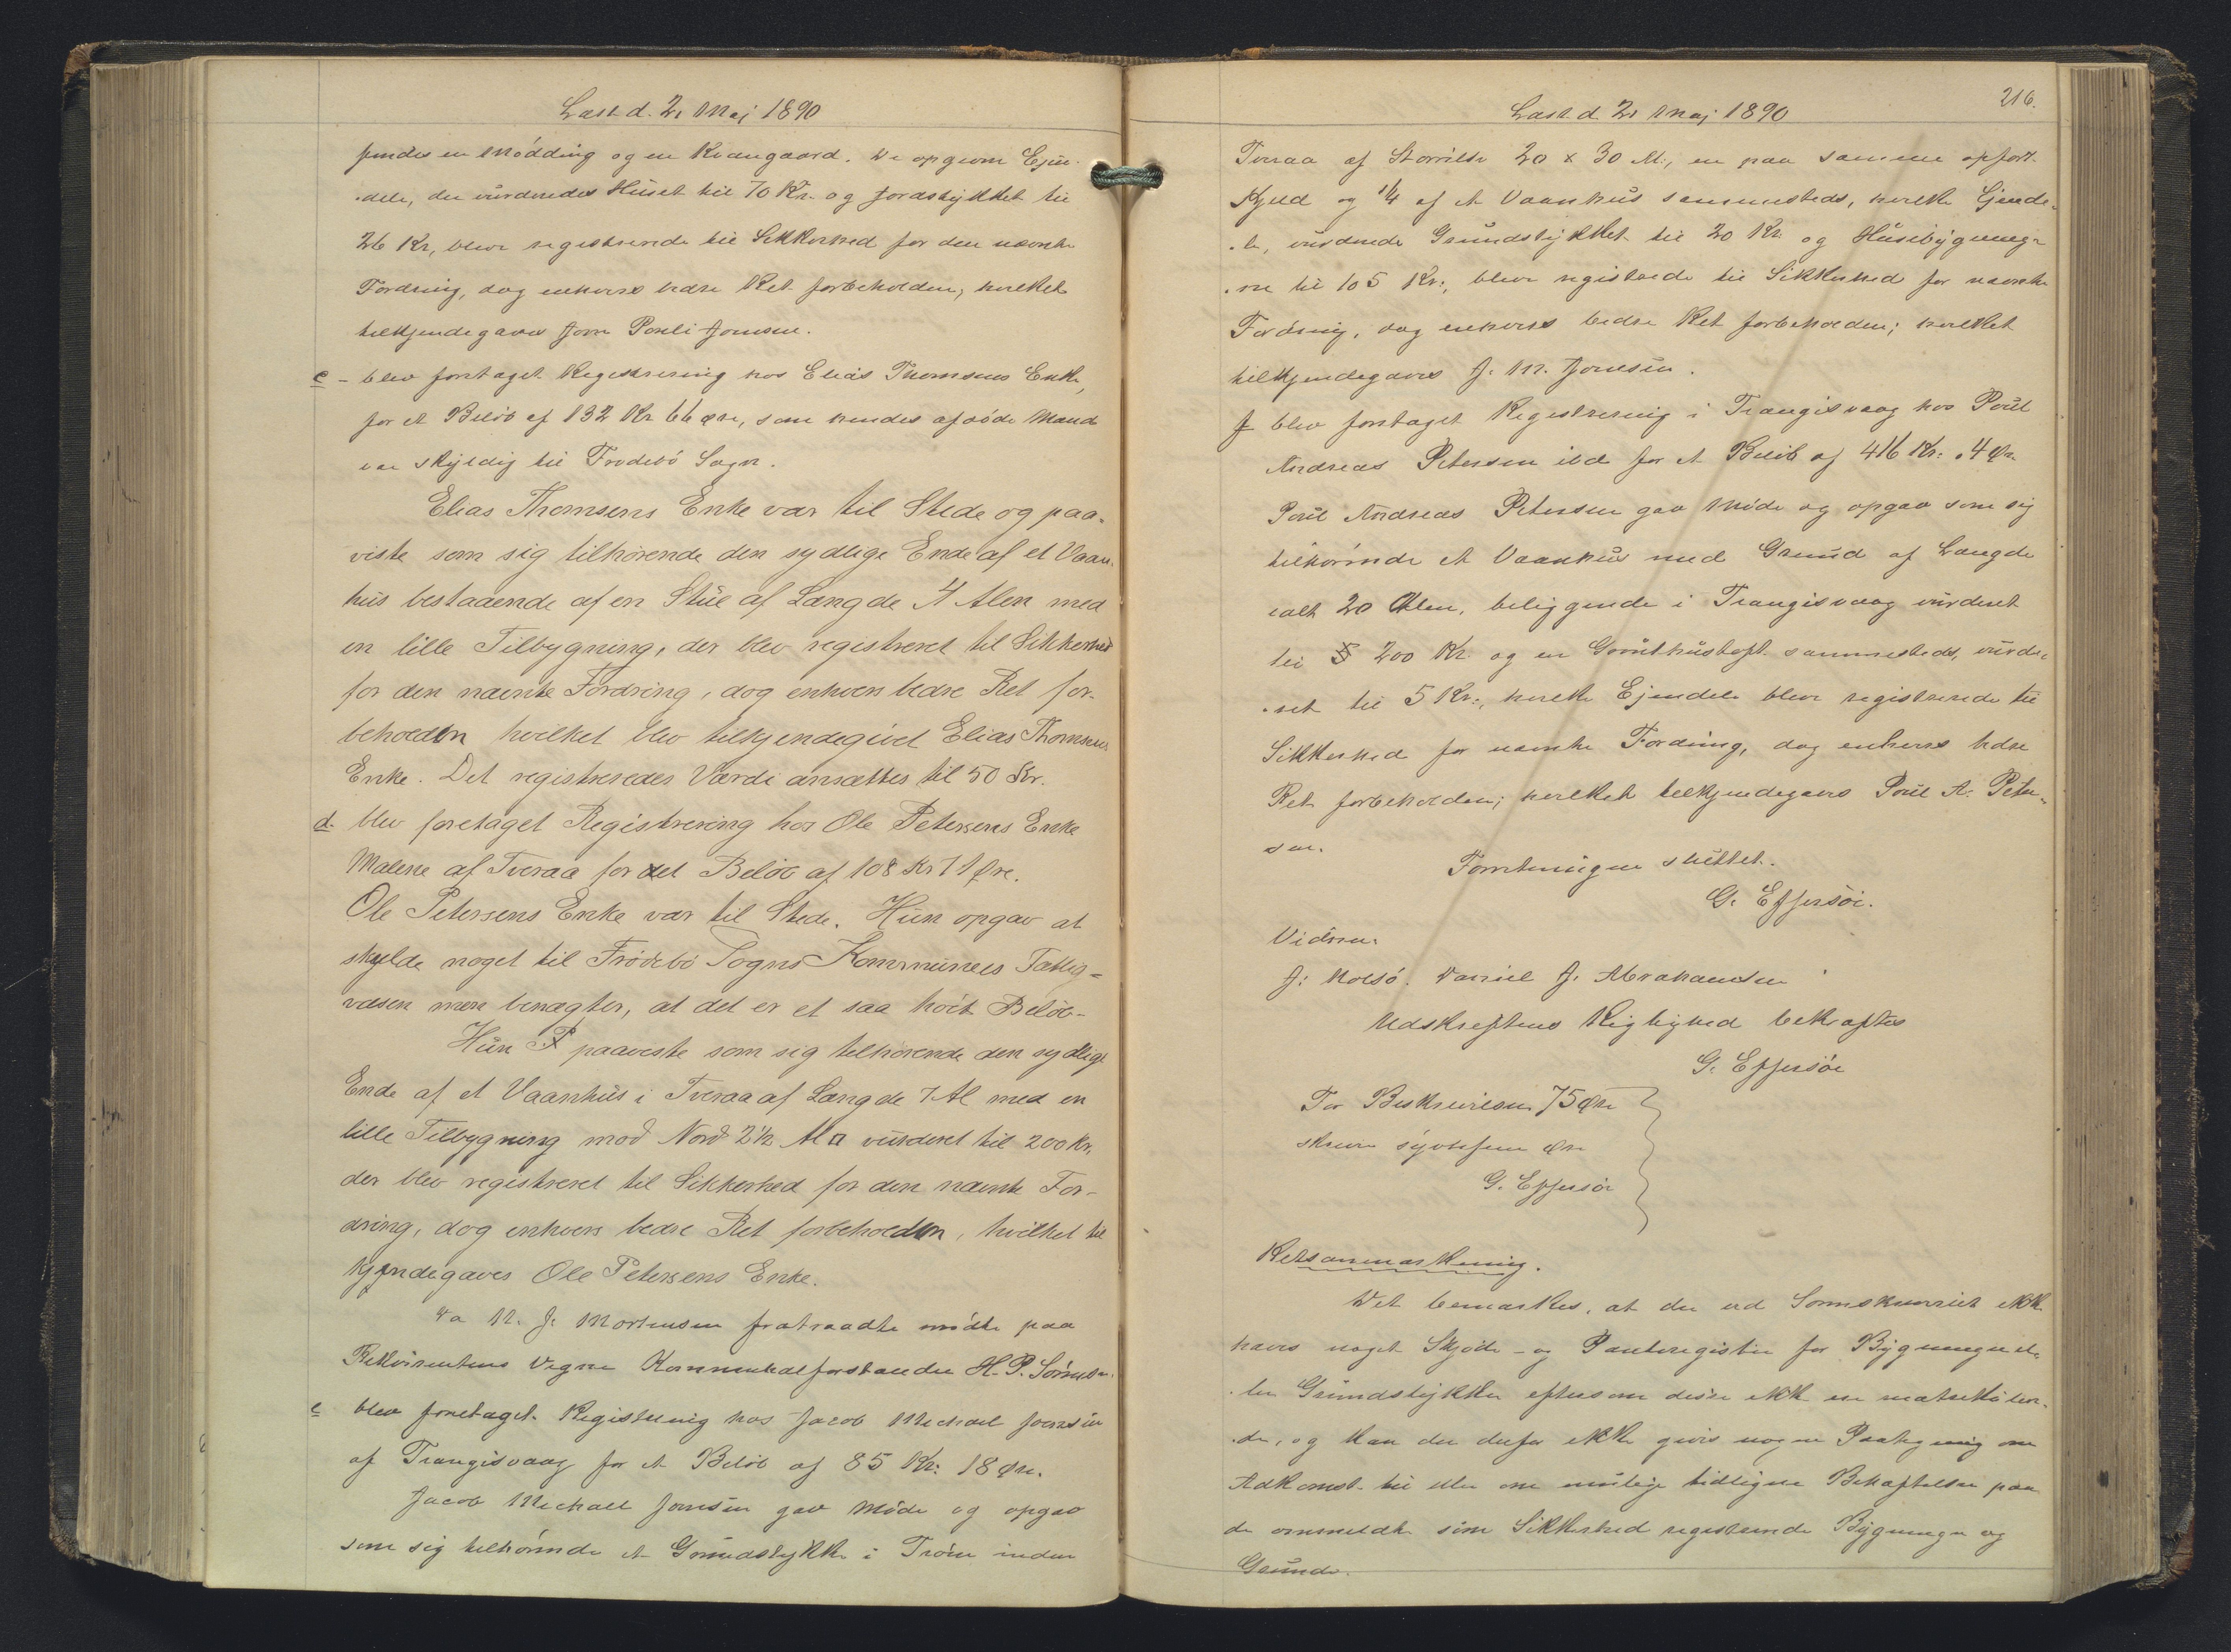 Læst d. 21 Maj 1890
findes en Mödding og en Kvangaard. De opgivne Ejen-
dele, der vurderedes Huset til 70 Kr. og Jordstykket til
26 Kr, blev registrerede til Sikkerhed for den nævnte
Fordring, dog enhvers bedre Ret forbeholden, hvilket
tilkjendegaves Joen Pouli Joensen.
c - blev foretaget Registrering hos Elias Thomsens Enke,
for et Beløb af 132 Kr 66 øre, som hendes afdöde Mand
var skyldig til Frodebö Sogn.
Elias Thomsens Enke var til Stede og paa-
viste som sig tilhörende den sydlige Ende af et Vaan-
hus bestaaende af en Stue af Længde 4 Alen med
en lille Tilbygning, der blev registreret til Sikkerhed
for den nævnte Fordring, dog enhvers bedre Ret for-
beholden hvilket blev tilkjendegivet Elias Thomsens
Enke. Det registreredes Værdi ansættes til 50 Kr.
d. blev foretaget Registrering hos Ole Petersens Enke
Malene af Tveraa for det Beløb af 108 Kr 71 Øre.
Ole Petersens Enke var til Stede. Hun opgav at
skylde noget til Frödebö Sogns Kommunes Fattig-
væsen men benægter, at det er et saa höit Beløb-
Hun paaviste som sig tilhörende den sydlige
Ende af et Vaanhus i Tveraa af Længde 7 Al med en
lille Tilbygning mod Nord 2½ Al □ vurderet til 200 Kr,
der blev registreret til Sikkerhed for den nævnte For-
dring, dog enhvers bedre Ret forbeholden, hvilket til
kjendegaves Ole Petersens Enke.
Da N. J. Mortensen fratraadte mödte paa
Rekvirentens Vegne Kommunalforstander H. P.
e blev foretaget Registrering hos Jacob Michael Joensen
af Trangisvaag for et Beløb af 85 Kr: 18 Øre.
Jacob Michael Joensen gav Møde og opgav
som sig tilhörende et Grundstykke i inden
216.
Læst d. 21 Maj 1890
Tveraa af Störrelse 20 x 30 Al:, en paa samme opfört
Kjeld og 1/4 af et Vaanhus sammesteds, hvilke Ejende-
le, vurderede Grundstykket til 20 Kr. og Husebygninger-
ne til 105 Kr:, blev registrerede til Sikkerhed for nævnte
Fordring, dog enhvers bedre Ret forbeholden; hvilket
tilkjendegaves J. M. Joensen.
f blev foretaget Registrering i Trangisvaag hos Poul
Andreas Petersen ibd for et Beløb af 416 Kr: 4 Øre
Poul Andreas Petersen gav Möde og opgav som sig
tilhörende et Vaanhus med Grund af Længde
ialt 20 Alen, beliggende i Trangisvaag vurderet
til 200 Kr. og en sammesteds, vurde-
ret til 5 Kr:, hvilke Ejendele blev registrerede til
Sikkerhed for nævnte Fordring, dog enhvers bedre
Ret forbeholden; hvilket tilkjendegaves Poul A. Peter-
sen.
Forretningen sluttet.
G. Effersöe.
Vidner:
J: Holsö. Daniel J. Abrahamsen
Udskriftens Rigtighed bekræftes
G. Effersöe
For Beskrivelsen 75 Øre
skriver syvtifem Øre
G. Effersöe
Retsanmærkning.
Det bemærkes, at der ved Sorenskriveriet ikke
haves noget Skjöde- og Panteregister for Bygninger el-
ler Grundstykker eftersom disse ikke er matrikuler-
de, og kan der derfor ikke gives nogen Paategning om
Adkomst til eller om mulige tidligere Behæftelser paa
de ommeldte som Sikkerhed registrerede Bygninger og
Grunde.